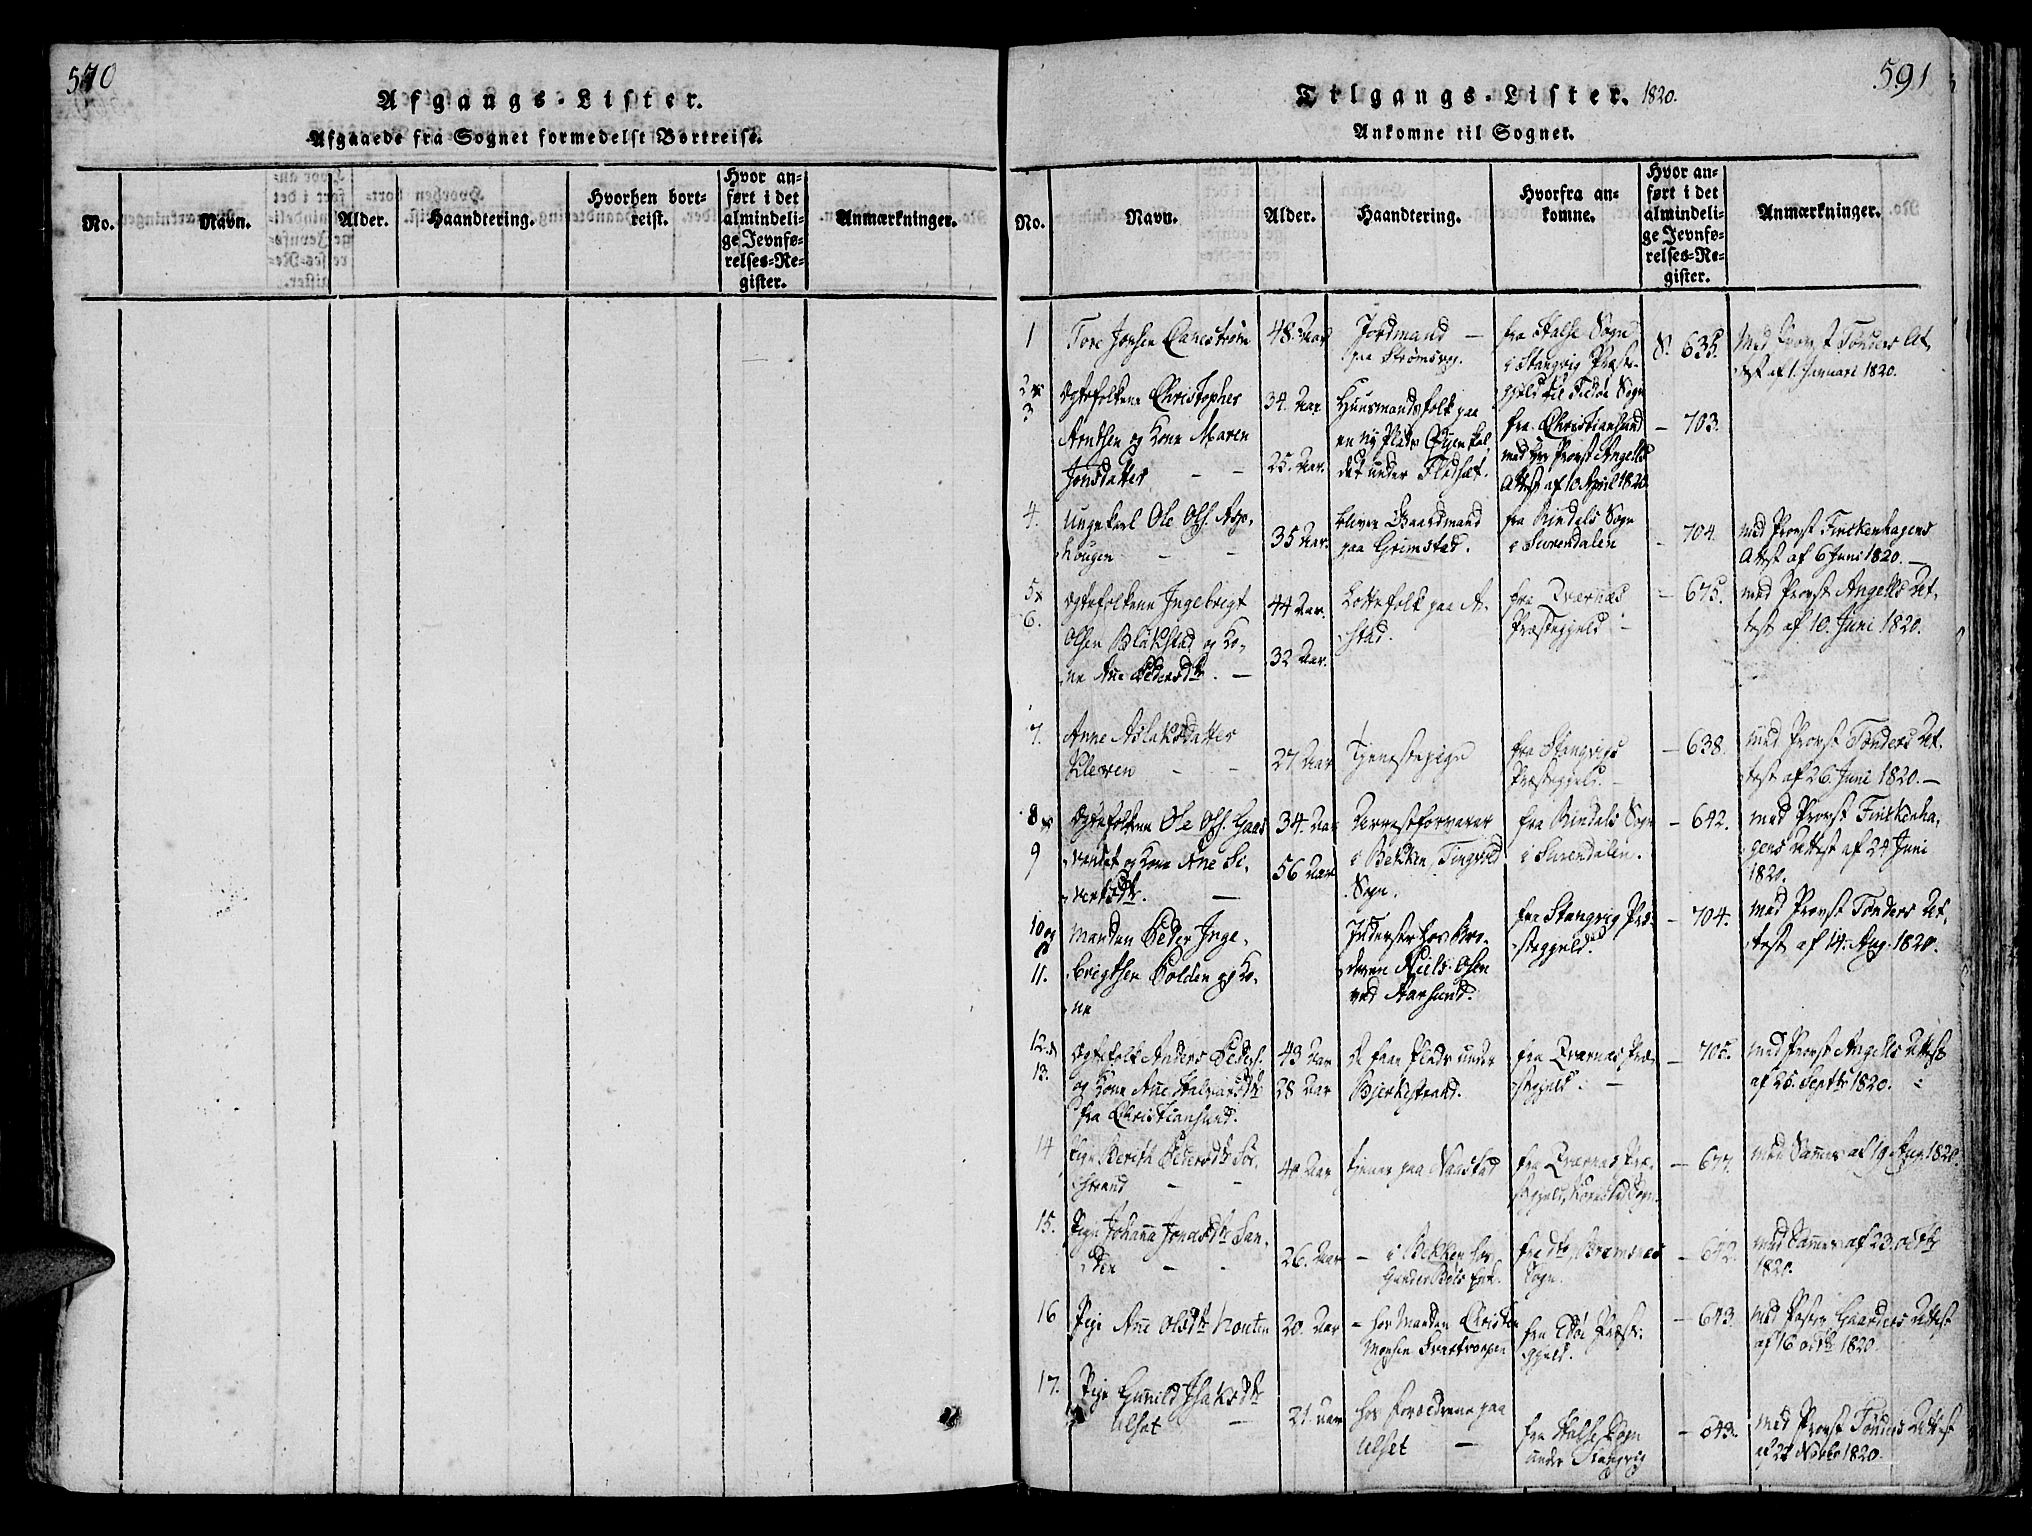 570
Afgangs-Lister.
Afgaaede fra Sognet formedelst Bortreise.
No.
Navn.
Alder.
Haandtering.
Hvorhen bort-
reist.
Hvor an-
ført i det
almindeli-
ge Jevnfø-
relses-Re-
gister.
Anmærkninger.
591
Tilgangs-Lister. 1820.
Ankomne til Sognet.
No.
Navn.
Alder.
Haandtering.
Hvorfra an-
komne.
Hvor an-
ført i det
almindeli-
ge Jevnfø-
relses-Re-
gister.
Anmærkninger.
1
Tore Jonsen
48. Aar
Jordmand —
paa Strømsvg.
fra Halse Sogn
i Stangvig Præste-
gjeld til Sogn
S. 635.
Med Provst Tønders At-
test af 1. Januari 1820.
2 og
3
Ægtefolkene Christopher
Arntsen og Kone Maren
Jonsdatter — —
34. Aar
25. Aar.
Huusmandsfolk paa
en ny Plads
det under Fladset.
fra Christiansund
med Hr Provst Angells
Attest af 10 April 1820.
— 703.
4.
Ungekarl Ole Ols. Asp-
hougen — —
35 Aar.
bliver Gaardmand
paa Grimstad.
fra Rindals Sogn
i Surendalen
— 704.
med Provst Finckenhagens
Attest af 6 Juni 1820. —
5 og
6.
Ægtefolkene Ingebrigt
Olsen Blakstad og Ko-
ne Ane Pedersdtr. —
44 Aar.
32 Aar.
paa A-
stad.
fra Qværnæs
Præstegjeld —
— 675.
med Provst Angells At-
test af 10. Juni 1820.
7.
Anne Aslaksdatter
Kleven — —
27. Aar
Tjenestepige
fra Stangvigs
Præstegjeld. —
— 638.
med Provst Tønders At-
test af 26. Juni 1820. —
8 og
9
Ægtefolkene Ole Ols. Gaas-
vandet og Kone Ane Si-
vertsdtr. —
34. Aar
56 Aar
Arrestforvarer
i Bekken, Tingvold
Sogn.
fra Rindals Sogn
i Surendalen.
— 642.
med Provst Finckenha-
gens Attest af 24 Juni
1820.
10 og
11.
Manden Peder Inge-
brigtsen Bolden og Ko-
ne
Inderster hos Bro-
deren Niels Olsen
ved Aarsund.
fra Stangvig Præ-
stegjeld.
— 704.
med Provst Tønders At-
test af 14. Aug. 1820.
12 og
13.
Ægtefolk Anders Peders.
og Kone Ane Halvarsdtr
fra Christiansund.
43 Aar
28 Aar
faar Plads under
Bjerkestrand.
fra Qværnæs Præ-
stegjeld. —
— 705.
med Provst Angells Attest
af 25. Septbr 1820.
14
Pige Berith Pedersdtr Sør-
strand — —
40 Aar
tiener paa Naastad
fra Qværnæs Præ-
stegjeld, Kornstad Sogn.
— 677.
med Sammes af 19 Aug. 1820.
15.
Pige Johana Jonasdtr San-
den — —
26. Aar
— i Bekken hos
fra dto, Bremsnes
Sogn.
— 642.
med Sammes af 23. octbr
1820.
16
Pige Ane Olsdtr Houten
20. Aar
— hos Manden Christen
Monsen
fra Edøe Præste-
gjeld.
— 643.
med Pastor Gaarders Attest
af 16 octbr 1820.
17.
Pige Gunild Isaksdtr
Ulset —
21. Aar
hos Forældrene paa
Ulset —
fra Halse Sogn
under Stangvig
— 643.
med Provst Tønders Attest
af 22 Novbr 1820.